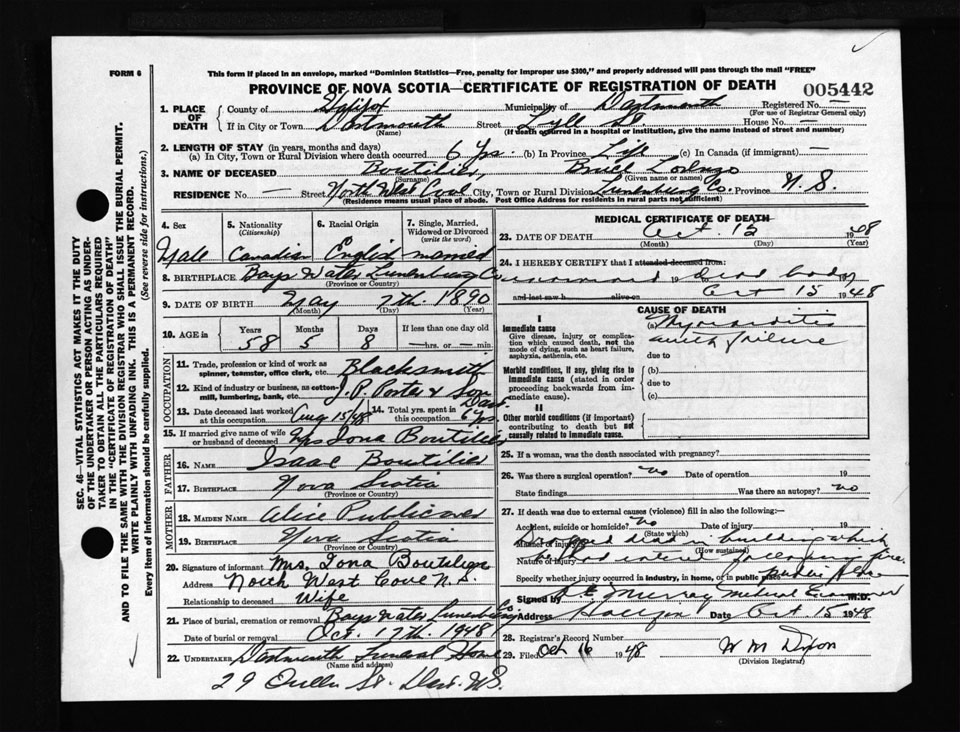 FORM 6
This form if placed in an envelope, marked "Dominion Statistics—Free, penalty for improper use $300," and properly addressed will pass through the mail "FREE"
PROVINCE OF NOVA SCOTIA—CERTIFICATE OF REGISTRATION OF DEATH
005442
SEC. 46—VITAL STATISTICS ACT MAKES IT THE DUTY
OF THE UNDERTAKER OR PERSON ACTING AS UNDER-
TAKER TO OBTAIN ALL THE PARTICULARS REQUIRED
IN THE "CERTIFICATE OF REGISTRATION OF DEATH"
AND TO FILE THE SAME WITH THE DIVISION REGISTRAR WHO SHALL ISSUE THE BURIAL PERMIT.
WRITE PLAINLY WITH UNFADING INK. THIS IS A PERMANENT RECORD.
Every item of information should be carefully supplied. (See reverse side for instructions.)
1. PLACE OF DEATH
County of Halifax Municipality of Dartmouth Registered No. —
(For use of Registrar General only)
If in City or Town Dartmouth Street Lyle St. House No. —
(Name) (If death occurred in a hospital or institution, give the name instead of street and number)
2. LENGTH OF STAY (in years, months and days)
(a) In City, Town or Rural Division where death occurred 6 Yrs. (b) In Province Life (c) In Canada (if immigrant) —
3. NAME OF DECEASED Boutilier, Lorenzo
(Surname) (Given name or names)
RESIDENCE No. — Street North West Cove City, Town or Rural Division Lunenburg Co. Province N. S.
(Residence means usual place of abode. Post Office Address for residents in rural parts not sufficient)
4. Sex
5. Nationality (Citizenship)
6. Racial Origin
7. Single, Married, Widowed or Divorced (write the word)
Male Canadian English married
8. BIRTHPLACE Bays Water Lunenburg Co
(Province or Country)
9. DATE OF BIRTH May 7th. 1890
(Month) (Day) (Year)
10. AGE in Years Months Days If less than one day old
58 5 8 —hrs. or —min.
OCCUPATION
11. Trade, profession or kind of work as spinner, teamster, office clerk, etc. Blacksmith
12. Kind of industry or business, as cotton-mill, lumbering, bank, etc. J. P. Porter & Son Dart.
13. Date deceased last worked at this occupation Aug 15/48
14. Total yrs. spent in this occupation 6 Yrs.
15. If married give name of wife or husband of deceased Mrs Iona Boutilier
FATHER
16. NAME Isaac Boutilier
17. BIRTHPLACE Nova Scotia
(Province or Country)
MOTHER
18. MAIDEN NAME Alice Publicover
19. BIRTHPLACE Nova Scotia
(Province or Country)
20. Signature of informant Mrs. Iona Boutilier
Address North West Cove N.S.
Relationship to deceased Wife
21. Place of burial, cremation or removal Bays Water Lunenburg Co.
Date of burial or removal Oct. 17th. 1948
22. UNDERTAKER Dartmouth Funeral Home
(Name and address)
29 Dart. N.S.
MEDICAL CERTIFICATE OF DEATH
23. DATE OF DEATH Oct. 15 1948
(Month) (Day) (Year)
24. I HEREBY CERTIFY that I attended deceased from:
19 dead body
and last saw h alive on Oct 15 1948
CAUSE OF DEATH
I
Immediate cause
Give disease, injury or complication which caused death, not the mode of dying, such as heart failure, asphyxia, asthenia, etc.
(a) Myocarditis
acute failure
due to
Morbid conditions, if any, giving rise to immediate cause (stated in order proceeding backwards from immediate cause).
(b)
due to
(c)
II
Other morbid conditions (if important) contributing to death but not causally related to immediate cause.
25. If a woman, was the death associated with pregnancy?
26. Was there a surgical operation? no Date of operation 19
State findings Was there an autopsy? no
27. If death was due to external causes (violence) fill in also the following:—
Accident, suicide or homicide? no Date of injury 19
(State which)
Manner of injury Dropped dead in building which
(How sustained)
Nature of injury he had entered fire.
Specify whether injury occurred in industry, in home, or in public place public place
Signed by Murray Medical Examiner M.D.
Address Halifax Date Oct 15 1948
28. Registrar's Record Number
29. Filed Oct 16 1948 W M Dixon
(Division Registrar)